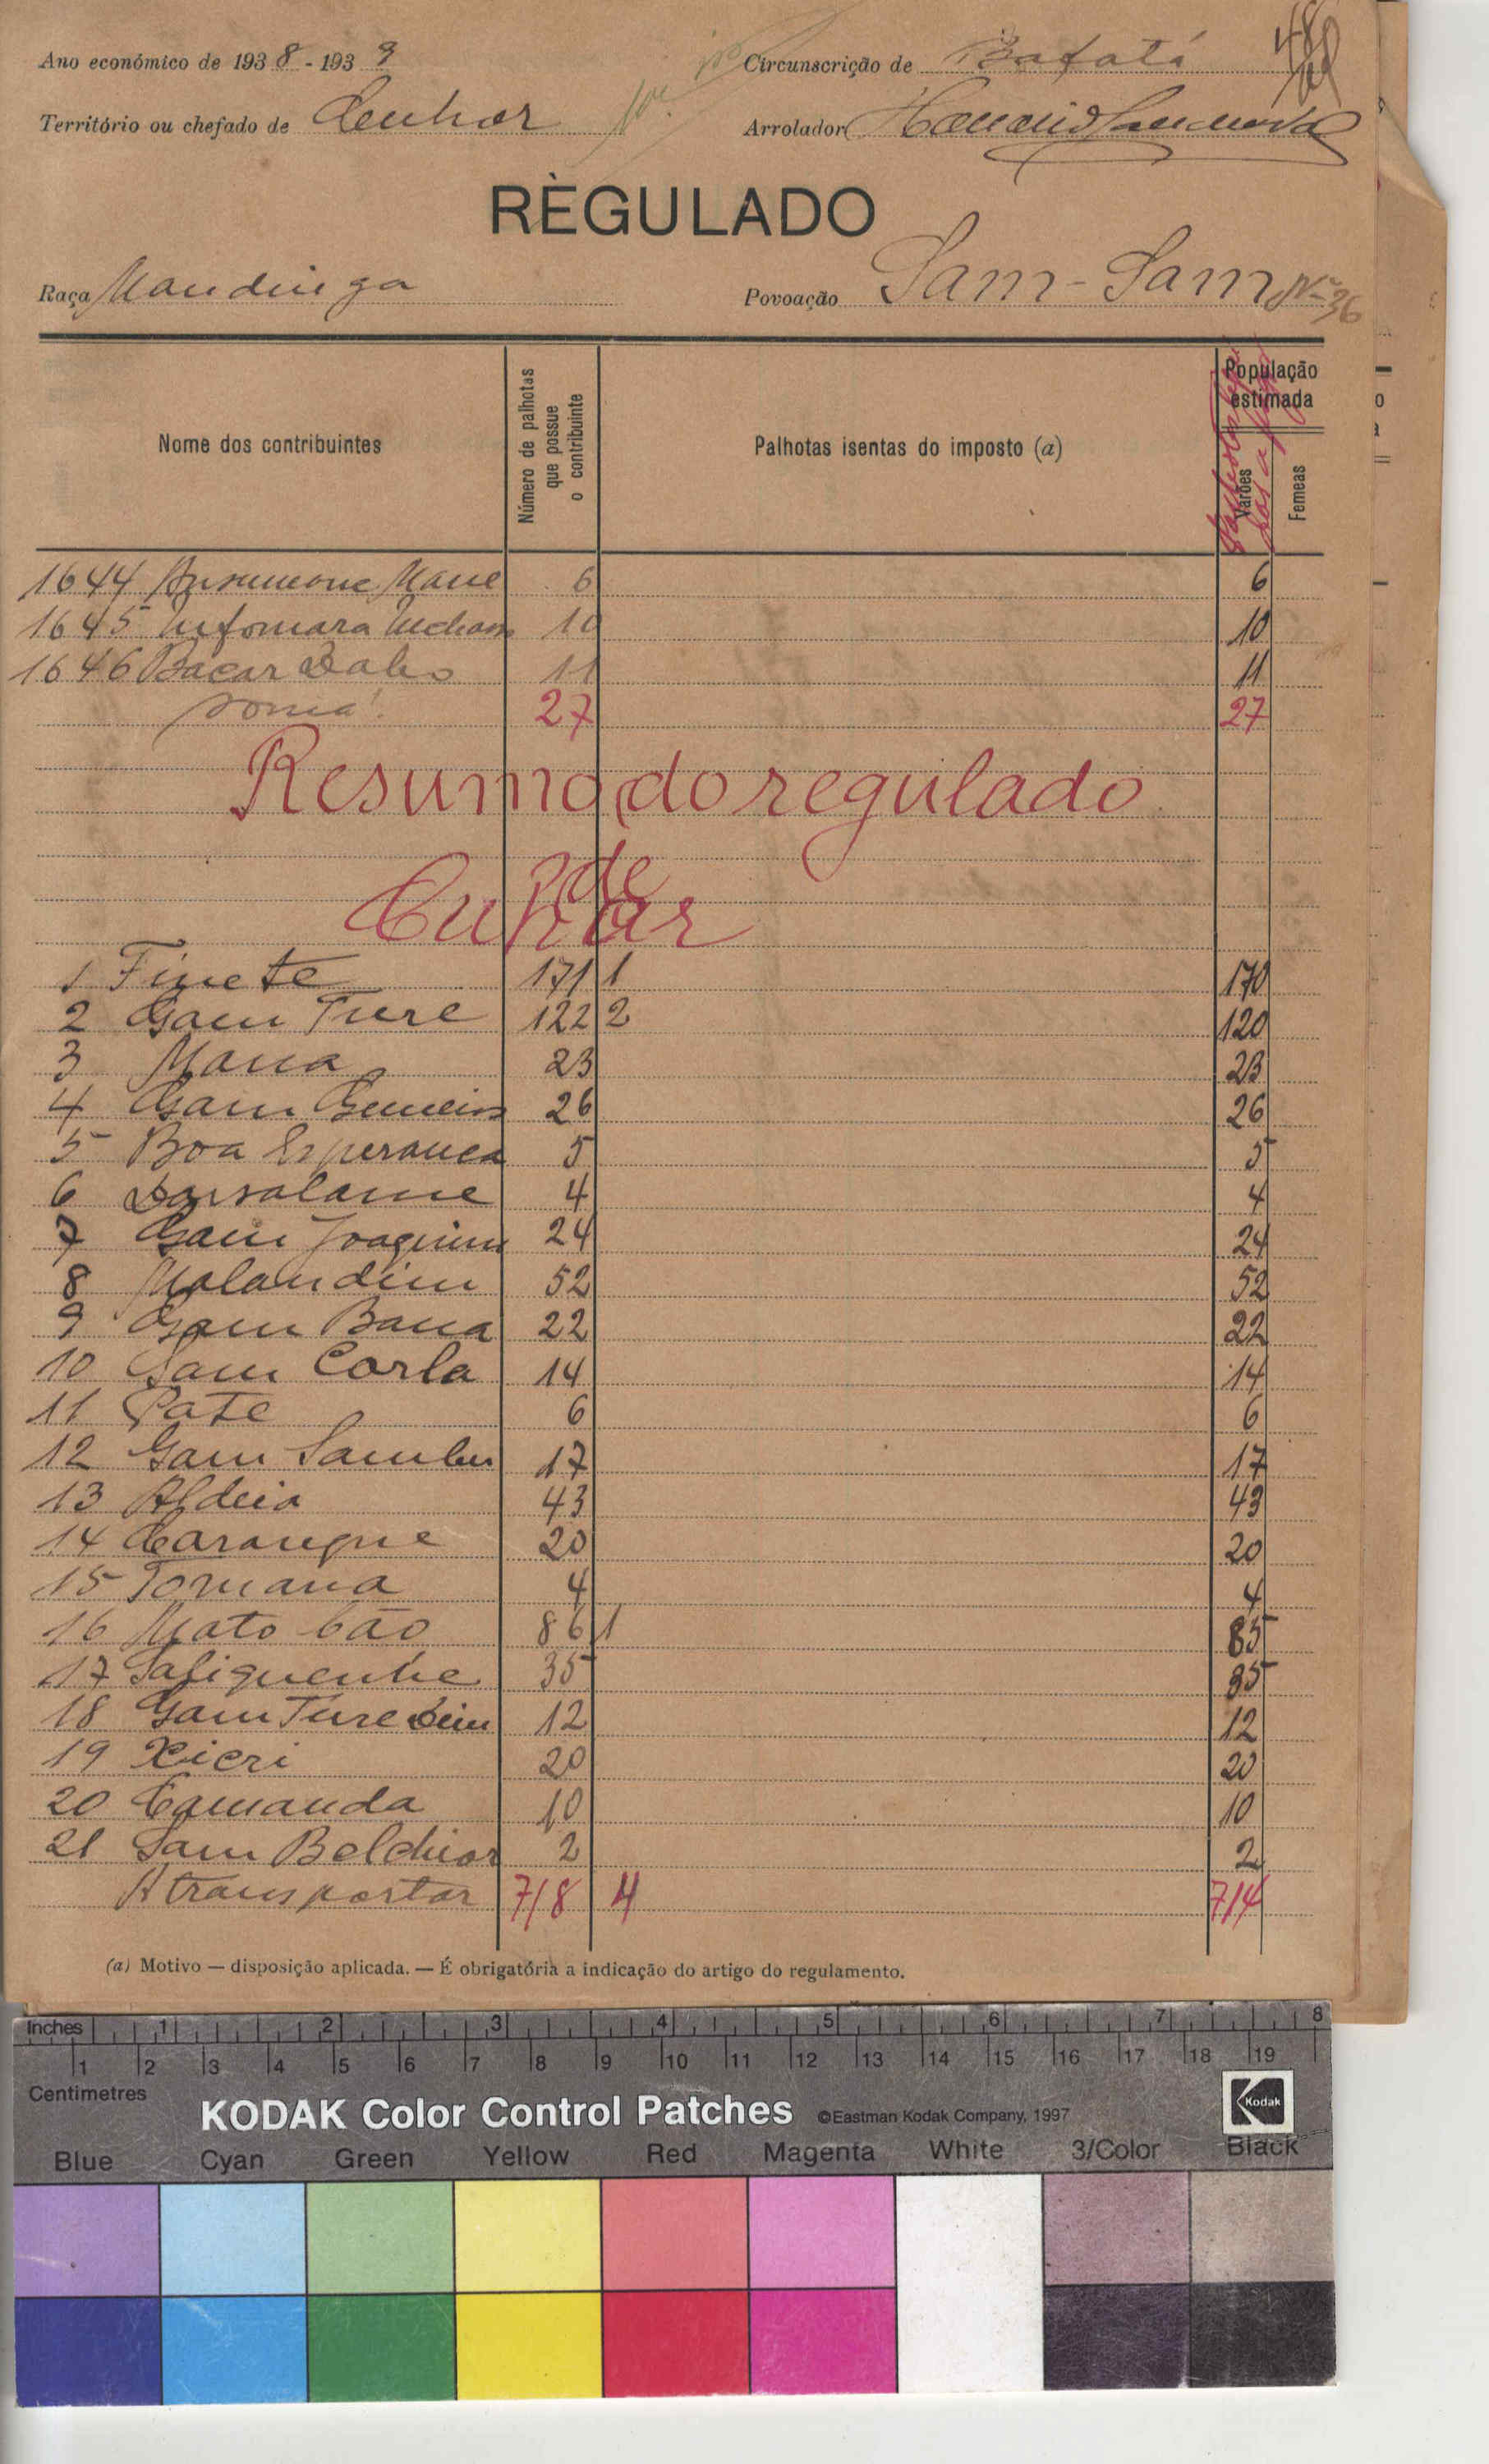 Ano económico de 1938-1939
Circunscrição de Bafatá
Território ou chefado de Cuhor
Arrolador
RÈGULADO
Raça Mandinga
Povoação Sam-Sam Nº 36
Nome dos contribuintes
Número de palhotas que possue o contribuinte
Palhotas isentas do imposto (a)
População estimada
Varões
Femeas
1644 Mane 6 6
1645 10 10
1646 Bacar Dabo 11 11
Soma 27 27
Resumo do regulado
de
Cuhor
1 Finete 171 1 170
2 Gam Ture 122 2 120
3 Mana 23 23
4 Gam 26 26
5 Boa Esperanca 5 5
6 Darsalame 4 4
7 Gam Joaquim 24 24
8 Malandim 52 52
9 Gam Bana 22 22
10 Gam Carla 14 14
11 Pate 6 6
12 Gam Sambu 17 17
13 Aldeia 43 43
14 Carangue 20 20
15 Tomana 4 4
16 Mato Cão 86 1 85
17 Saliquenhe 35 35
18 Gam Ture 12 12
19 Xicri 20 20
20 Camanda 10 10
21 Gam Belchior 2 2
A transportar 718 4 714
(a) Motivo — disposição aplicada. — É obrigatória a indicação do artigo do regulamento.
Inches 1 2 3 4 5 6 7 8
1 2 3 4 5 6 7 8 9 10 11 12 13 14 15 16 17 18 19
Centimetres
KODAK Color Control Patches ©Eastman Kodak Company, 1997 Kodak
Blue Cyan Green Yellow Red Magenta White 3/Color Black